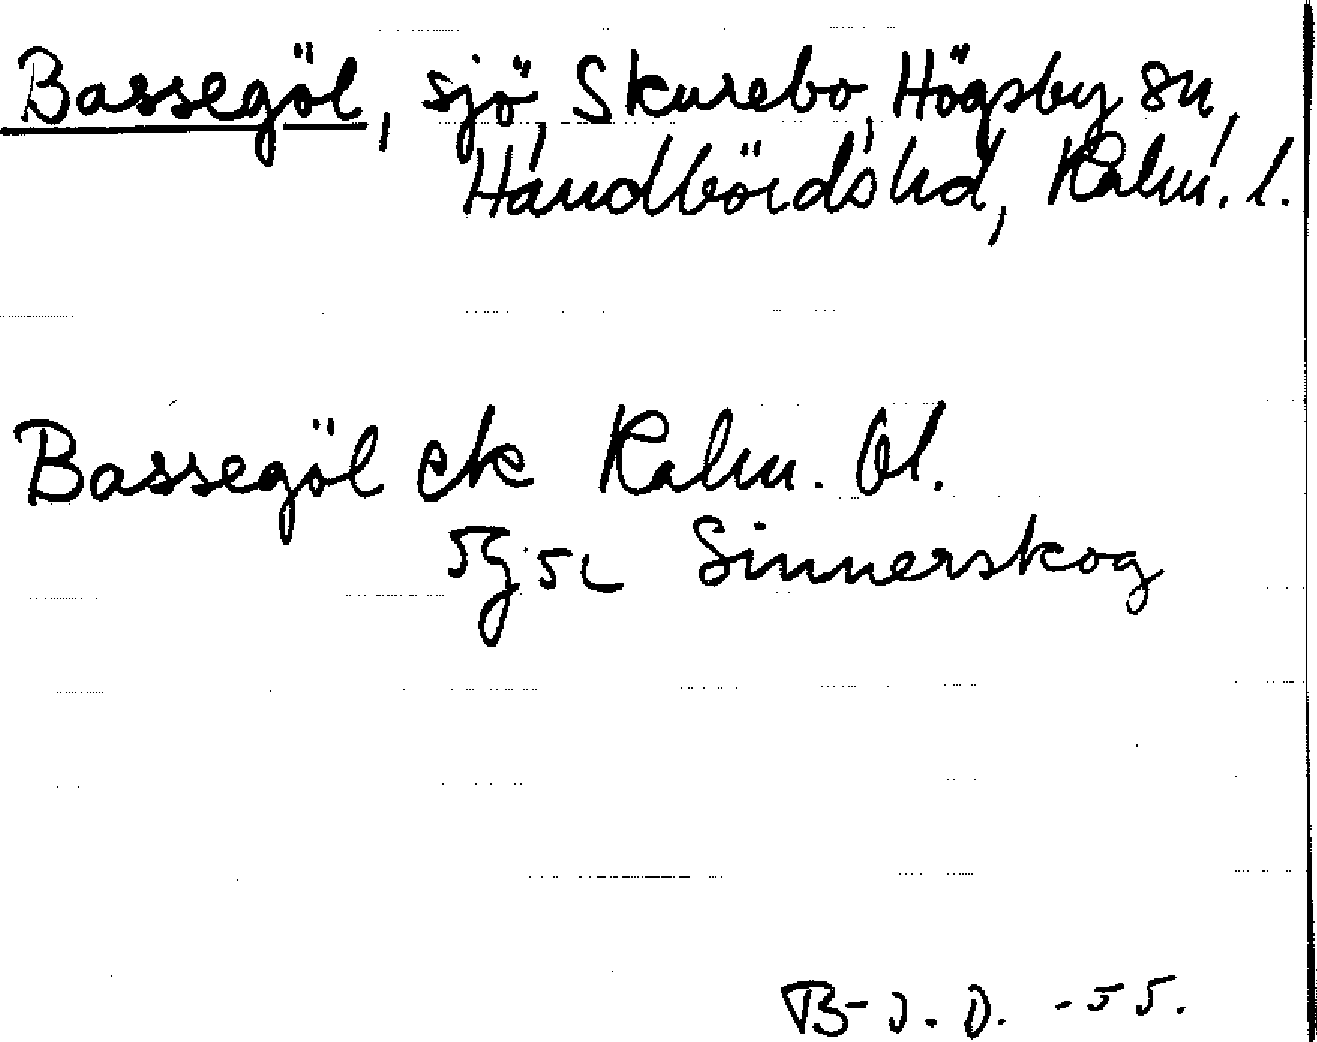 Bassegöl, sjö, Skurebo, Högsby sn,
Handbörds hd, Kalm. l.
Bassegöl ek Kalm. bl.
5G 5c Sinnerskog
B-J. D. -55.